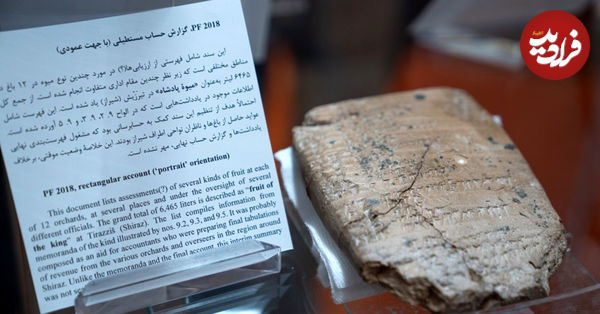 PF 2018، گزارش حساب مستطیلی (با جهت عمودی)
این سند شامل فهرستی از ارزیابی‌ها(؟) در مورد چندین نوع میوه در ۱۲ باغ در
مناطق مختلفی است که زیر نظر چندین مقام اداری متفاوت انجام شده است. از جمع کل
۶۴۶۵ لیتر به‌عنوان «میوهٔ پادشاه» در تیرَزّیش (شیراز) یاد شده است. این فهرست شامل
اطلاعات موجود در یادداشت‌هایی است که در الواح ۹.۲، ۹.۳ و ۹.۵ آورده شده است.
احتمالاً هدف از تنظیم این سند کمک به حسابرسانی بود که مشغول فهرست‌بندی نهایی
عواید حاصل از باغ‌ها و ناظران نواحی اطراف شیراز بودند. این خلاصهٔ وضعیت موقتی، برخلاف
یادداشت‌ها و گزارش حساب نهایی، مهر نشده است.
PF 2018, rectangular account ('portrait' orientation)
This document lists assessments(?) of several kinds of fruit at each
of 12 orchards, at several places and under the oversight of several
different officials. The grand total of 6,465 liters is described as "fruit of
the king" at Tirazziš (Shiraz). The list compiles information from
memoranda of the kind illustrated by nos. 9.2, 9.3, and 9.5. It was probably
composed as an aid for accountants who were preparing final tabulations
of revenue from the various orchards and overseers in the region around
Shiraz. Unlike the memoranda and the final account, this interim summary
was not
فرادید